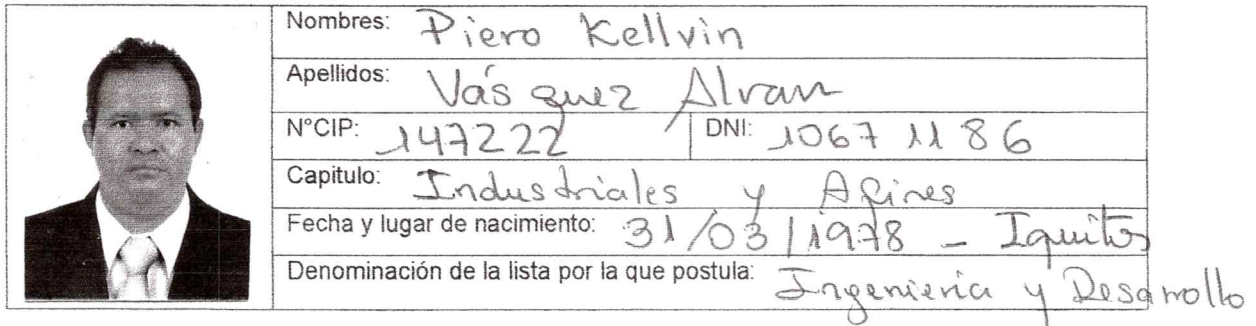 Nombres: Piero Kellvin
Apellidos: Vásquez Alvan
N°CIP: 147222 DNI: 10671186
Capitulo: Industriales y Afines
Fecha y lugar de nacimiento: 31/03/1978 - Iquitos
Denominación de la lista por la que postula: Ingenieria y Desarrollo